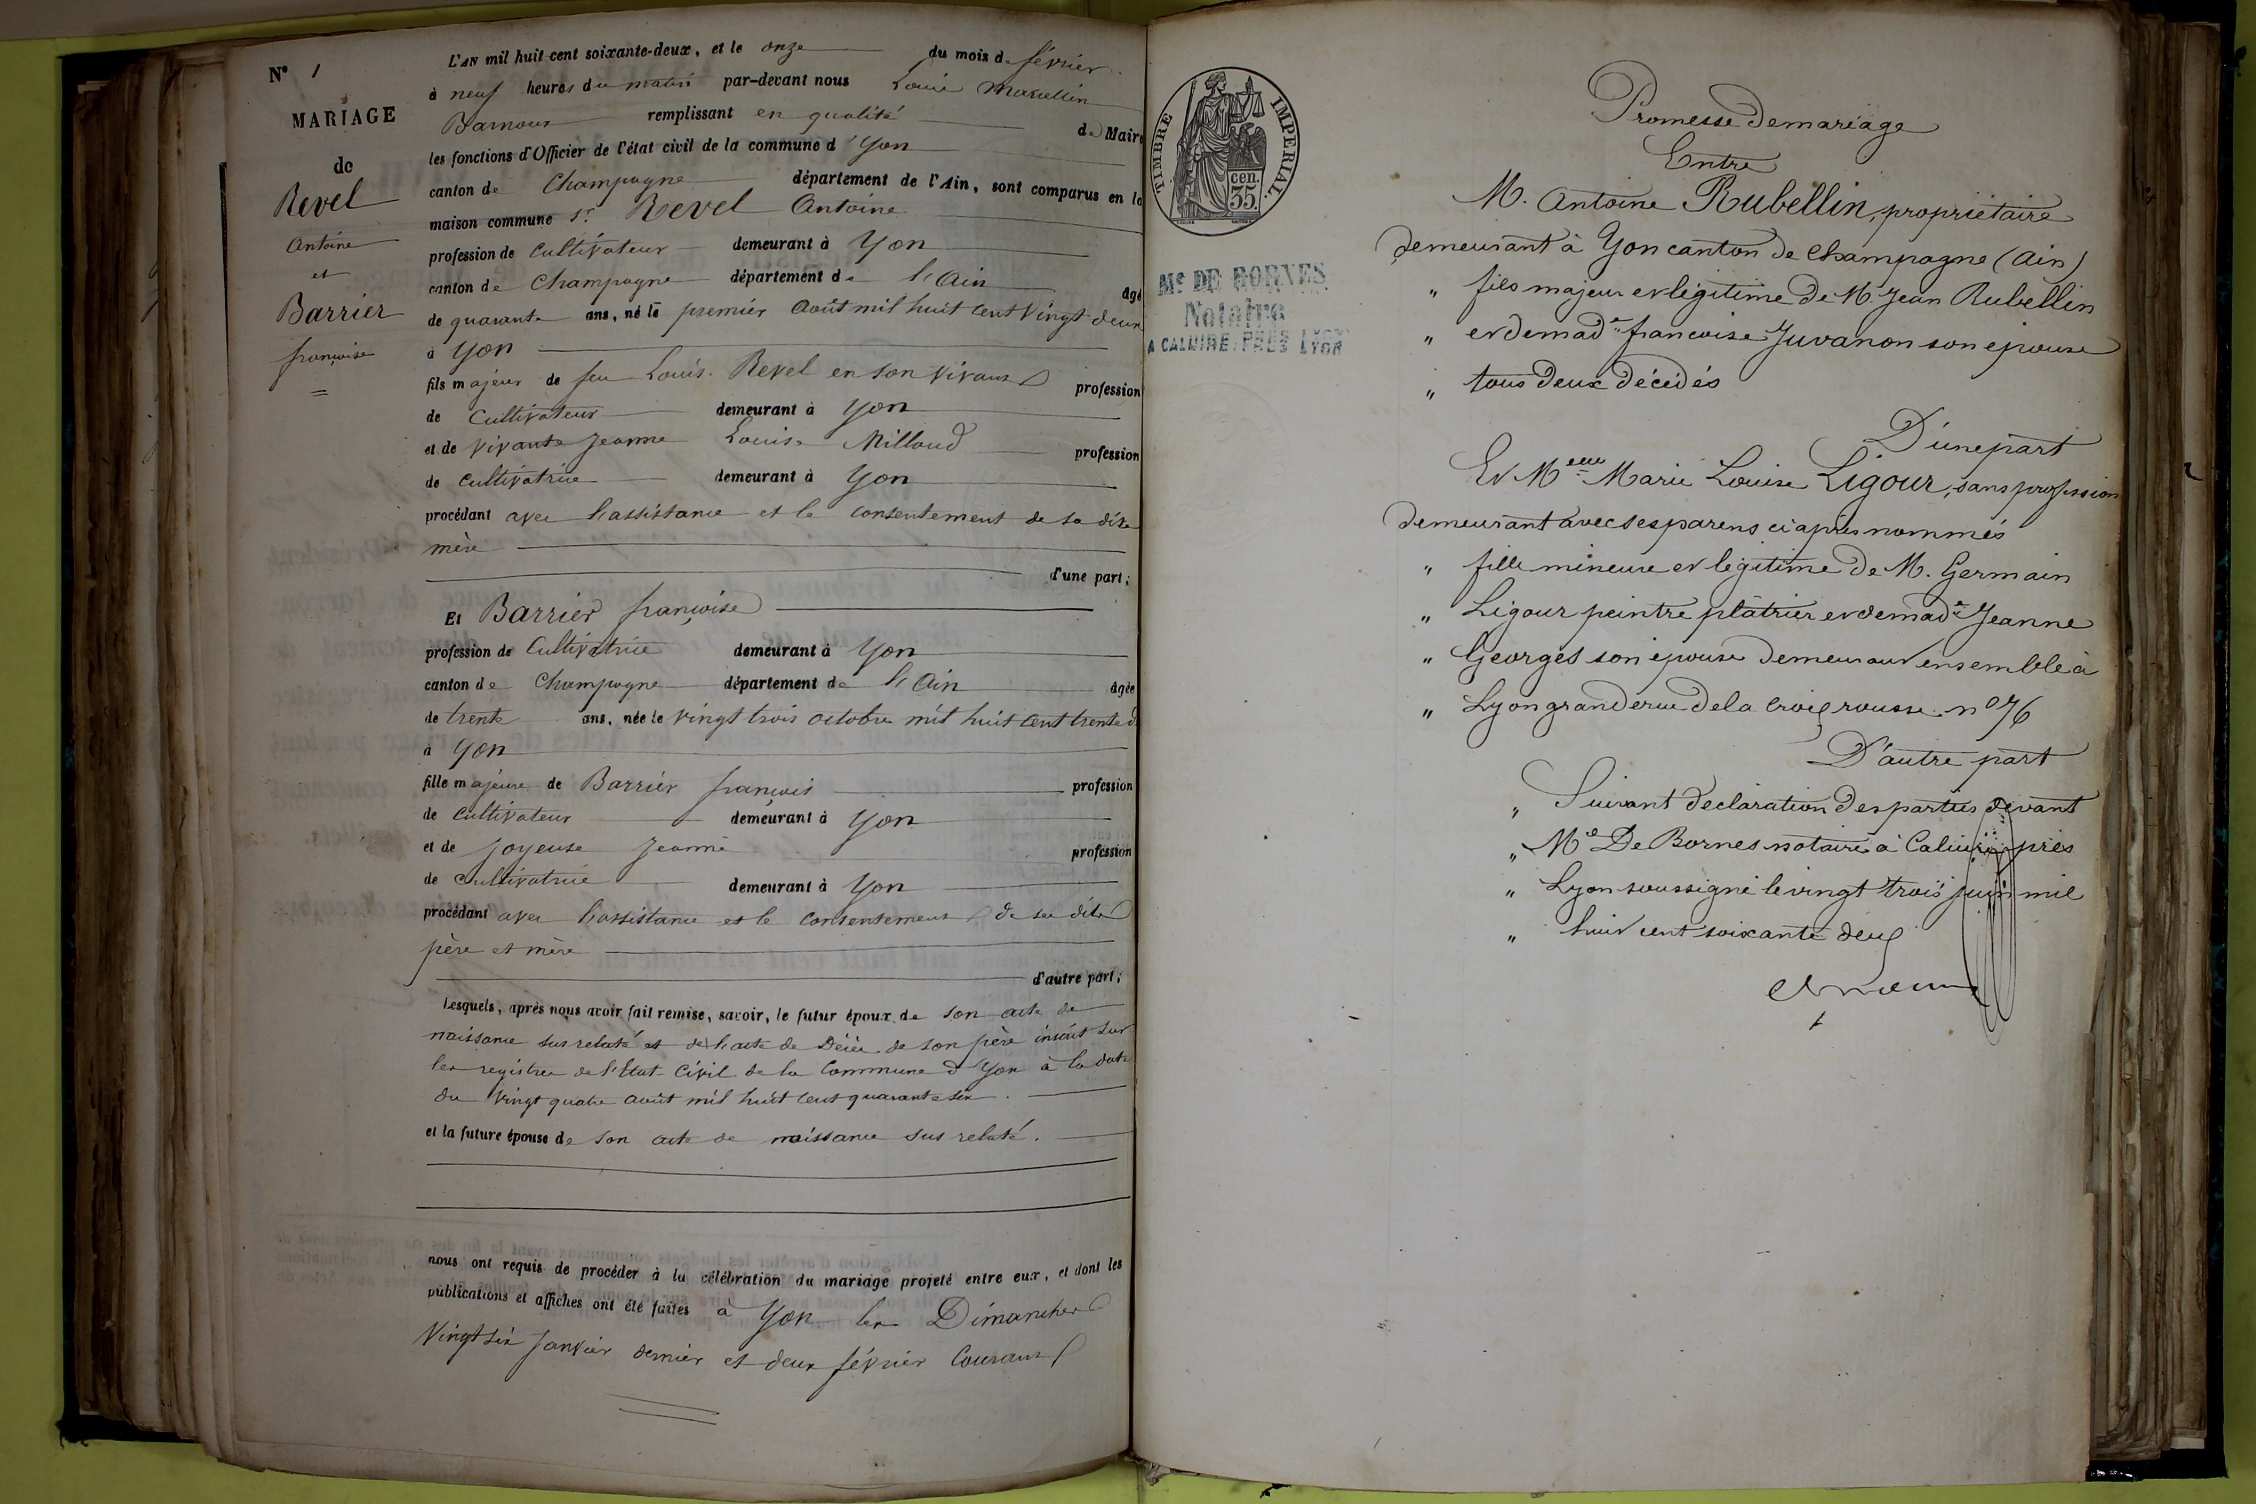 N° 1
MARIAGE
de
Revel
Antoine
et
Barrier
françoise
L'AN mil huit cent soixante-deux, et le onze du mois de février
à neuf heures du matin par-devant nous Louis Marcellin
Barnoux remplissant en qualité de Maire
les fonctions d'Officier de l'état civil de la commune d'Yon
canton de Champagne département de l'Ain, sont comparus en la
maison commune Sr Revel Antoine
profession de cultivateur demeurant à Yon
canton de Champagne département de l'Ain âgé
de quarante ans, né le premier Août mil huit cent vingt-deux
à Yon
fils majeur de feu Louis Revel en son vivant profession
de Cultivateur demeurant à Yon
et de vivante Jeanne Louise Millaud profession
de cultivatrice demeurant à Yon
procédant avec l'assistance et le consentement de sa dite
mère
d'une part;
Et Barrier françoise
profession de Cultivatrice demeurant à Yon
canton de Champagne département de l'Ain âgée
de trente ans, née le vingt trois octobre mil huit cent trente
à Yon
fille majeure de Barrier françois profession
de Cultivateur demeurant à Yon
et de Joyeuse Jeanne profession
de Cultivatrice demeurant à Yon
procédant avec l'assistance et le consentement de ses dits
père et mère
d'autre part;
Lesquels, après nous avoir fait remise, savoir, le futur époux de son acte de
naissance sus relaté et de l'acte de Décès de son père inscrit sur
les registres de l'Etat Civil de la Commune d'Yon à la date
du vingt quatre août mil huit cent quarante six.
et la future épouse de son acte de naissance sus relaté.
nous ont requis de procéder à la célébration du mariage projeté entre eux, et dont les
publications et affiches ont été faites à Yon les Dimanches
Vingt six Janvier dernier et deux février Courant
TIMBRE IMPERIAL.
35 cen.
Me DE BORNES
Notaire
A CALUIRE PRÈS LYON
Promesse de mariage
Entre
M. Antoine Rubellin, propriétaire
demeurant à Yon canton de Champagne (Ain)
" fils majeur et légitime de M. Jean Rubellin
" et de madᵉ francoise Juvanon son épouse
" tous deux décédés
D'une part
Et Melle Marie Louise Ligour, sans profession
demeurant avec ses parens ci après nommés
" fille mineure et légitime de M. Germain
" Ligour peintre plâtrier et de madᵉ Jeanne
" Georges son épouse demeurant ensemble à
" Lyon grande rue de la Croix rousse no 76
D'autre part
" Suivant déclaration des parties devant
" Me De Bornes notaire à Caluire près
" Lyon soussigné le vingt trois juin mil
" huit cent soixante deux